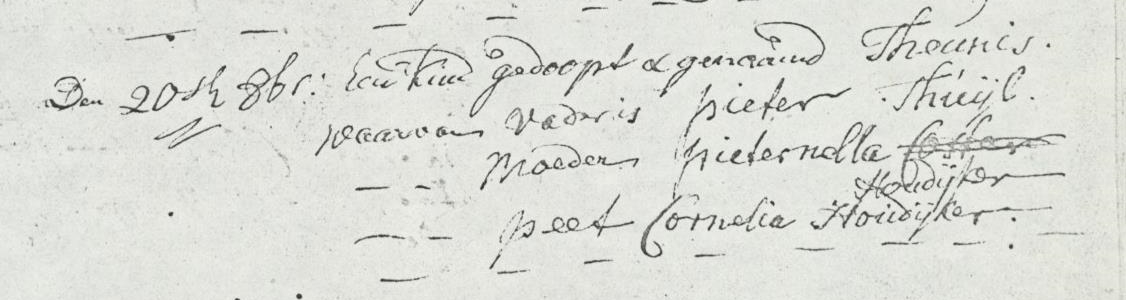 Den 20sten 8br: Een kind gedoopt & genaamd Theunis.
waarvan Vader is pieter Thuijl.
— — Moeder pieternella Coster
Houdijker
— — peet Cornelia Houdijker.